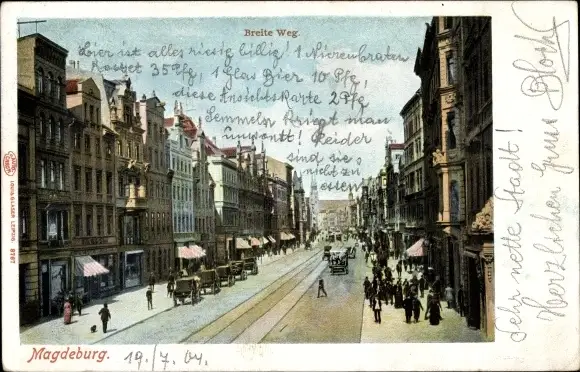 Breite Weg.
Hier ist alles riesig billig! 1 Nierenbraten
kostet 35 Pfg, 1 Glas Bier 10 Pfg,
diese Ansichtskarte 2 Pfg
Semmeln kriegt man
umsonst! Leider
sind sie
nicht zu
essen
Sehr nette Stadt!
Herzlichen Gruss
Magdeburg.
19./7. 04.